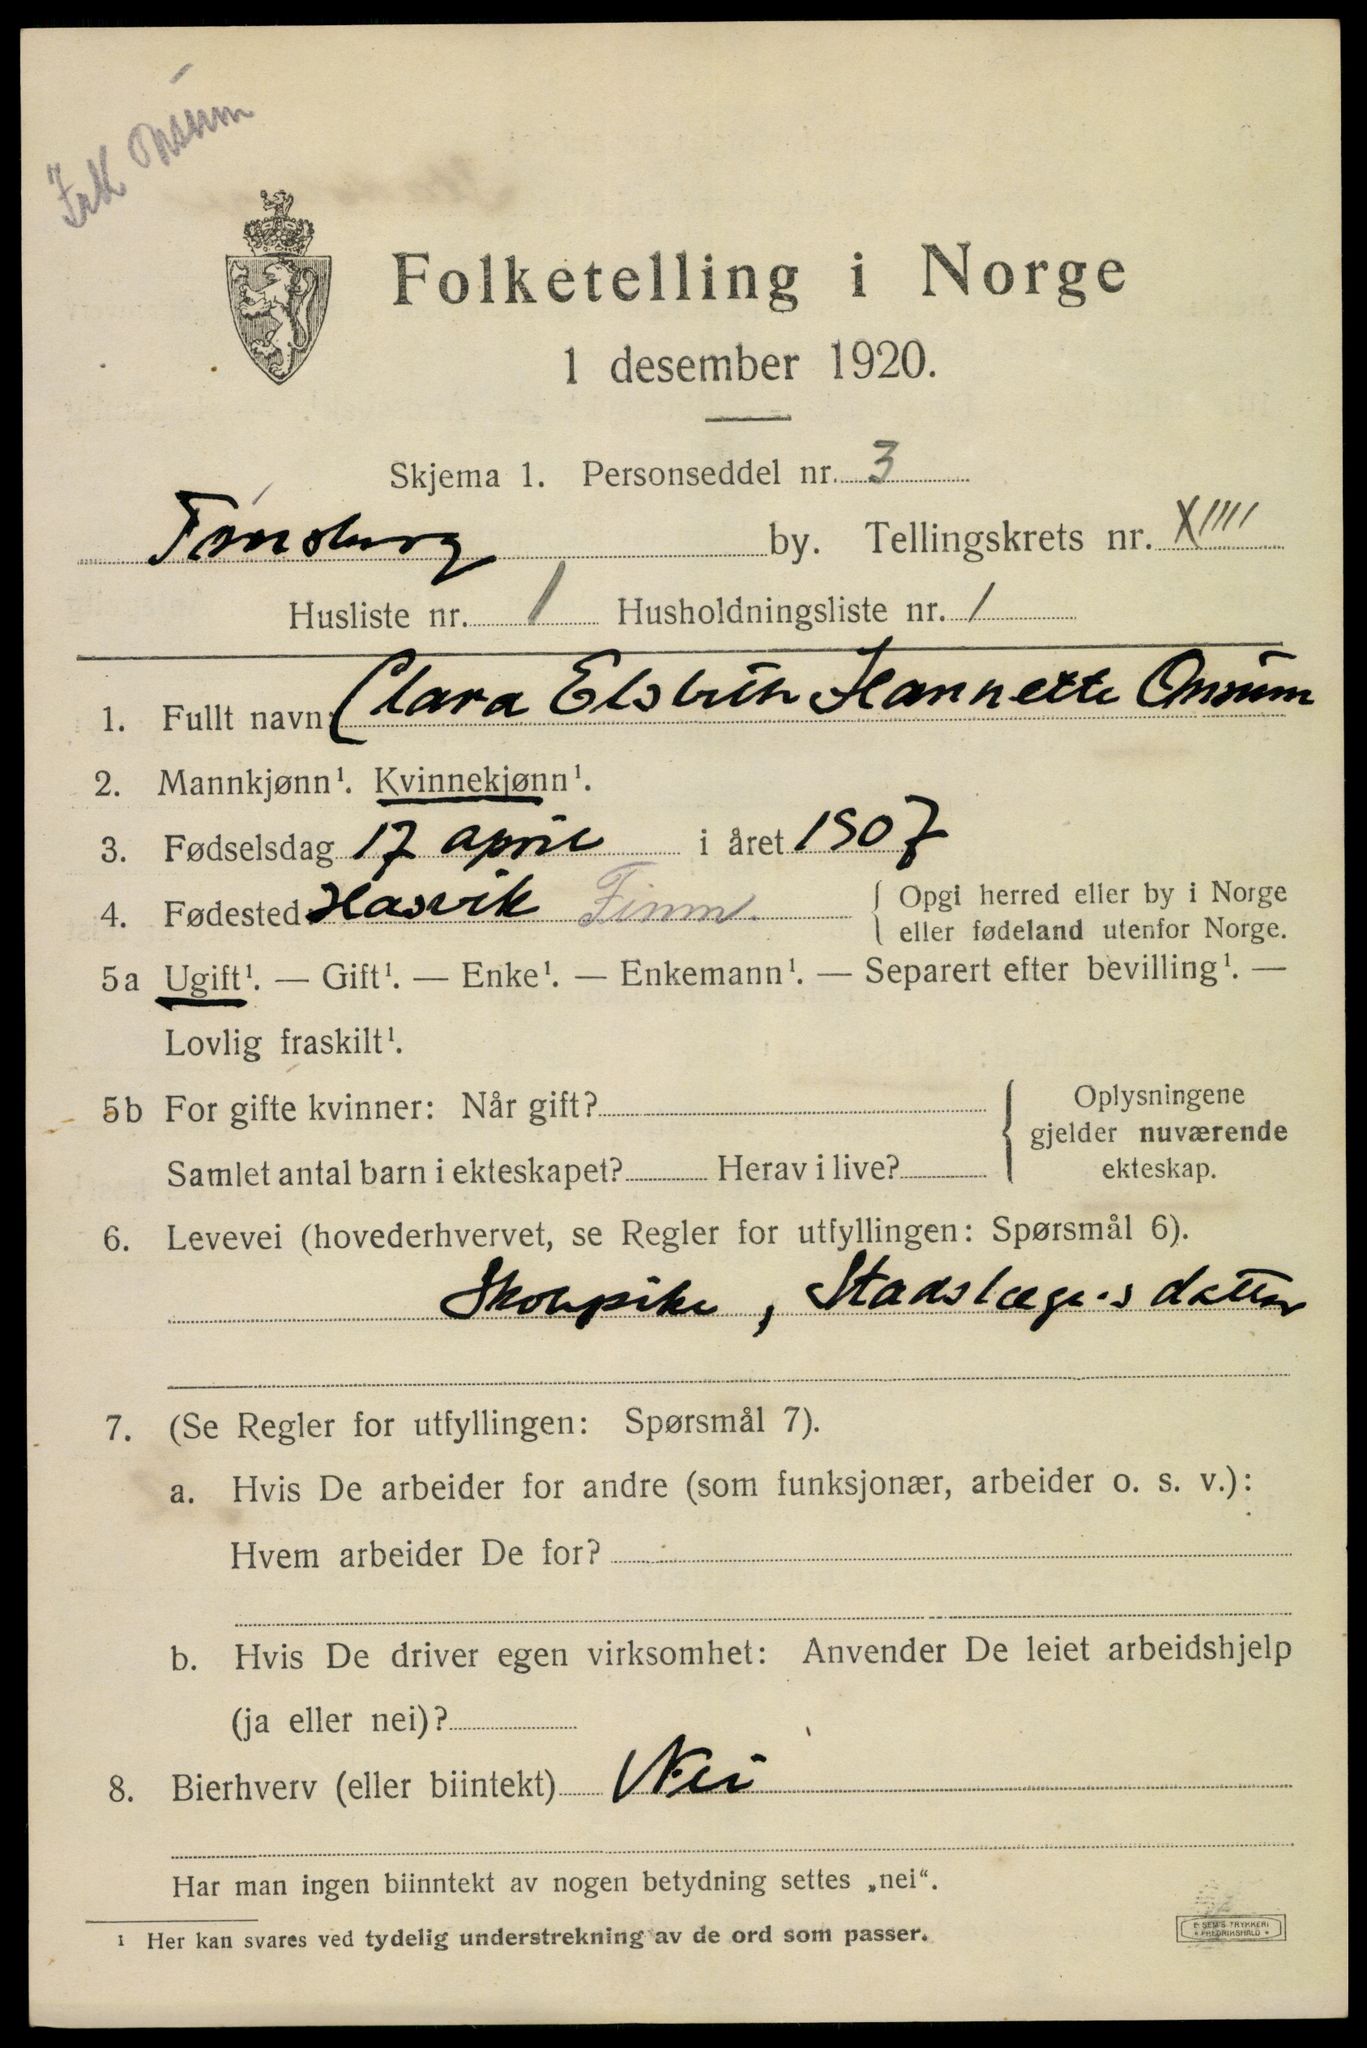 Frk Onsum
Folketelling i Norge
1 desember 1920.
Skjema 1. Personseddel nr. 3
Tønsberg by. Tellingskrets nr. XIIII
Husliste nr. 1 Husholdningsliste nr. 1
1. Fullt navn Clara Elsbeth Hannette Onsum
2. Mannkjønn¹. Kvinnekjønn¹.
3. Fødselsdag 17 april i året 1907
4. Fødested Hasvik Finm. { Opgi herred eller by i Norge
eller fødeland utenfor Norge.
5a Ugift¹. — Gift¹. — Enke¹. — Enkemann¹. — Separert efter bevilling¹. —
Lovlig fraskilt¹.
5b For gifte kvinner: Når gift? { Oplysningene
gjelder nuværende
Samlet antal barn i ekteskapet? Herav i live? ekteskap.
6. Levevei (hovederhvervet, se Regler for utfyllingen: Spørsmål 6).
Skolepike, Stadslæges datter
7. (Se Regler for utfyllingen: Spørsmål 7).
a. Hvis De arbeider for andre (som funksjonær, arbeider o. s. v.):
Hvem arbeider De for?
b. Hvis De driver egen virksomhet: Anvender De leiet arbeidshjelp
(ja eller nei)?
8. Bierhverv (eller biintekt) Nei
Har man ingen biinntekt av nogen betydning settes „nei“.
¹ Her kan svares ved tydelig understrekning av de ord som passer.
E SEM'S TRYKKERI
FREDRIKSHALD